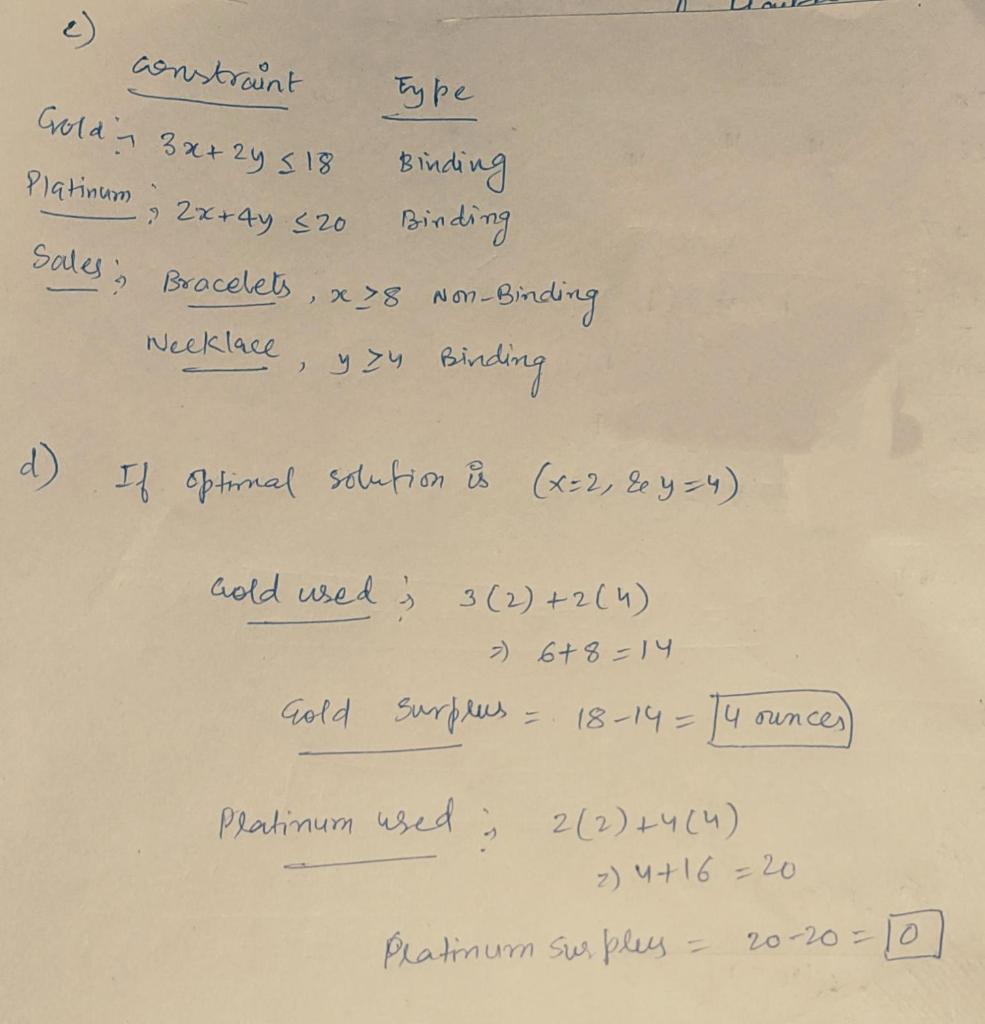 c)
constraint Type
Gold ; 3x+2y ≤ 18 Binding
Platinum ; 2x+4y ≤ 20 Binding
Sales ; Bracelets , x ≥ 8 Non-Binding
Necklace , y ≥ 4 Binding
d) If optimal solution is (x=2, & y=4)
Gold used ; 3(2)+2(4)
=) 6+8=14
Gold Surplus = 18-14= 4 ounces
Platinum used ; 2(2)+4(4)
=) 4+16 = 20
Platinum Surplus = 20-20 = 0